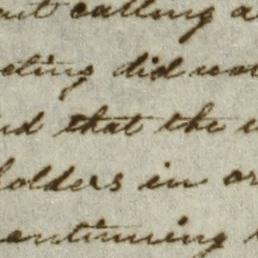 out calling a
eting did not
nd that the
holders in or
continuing